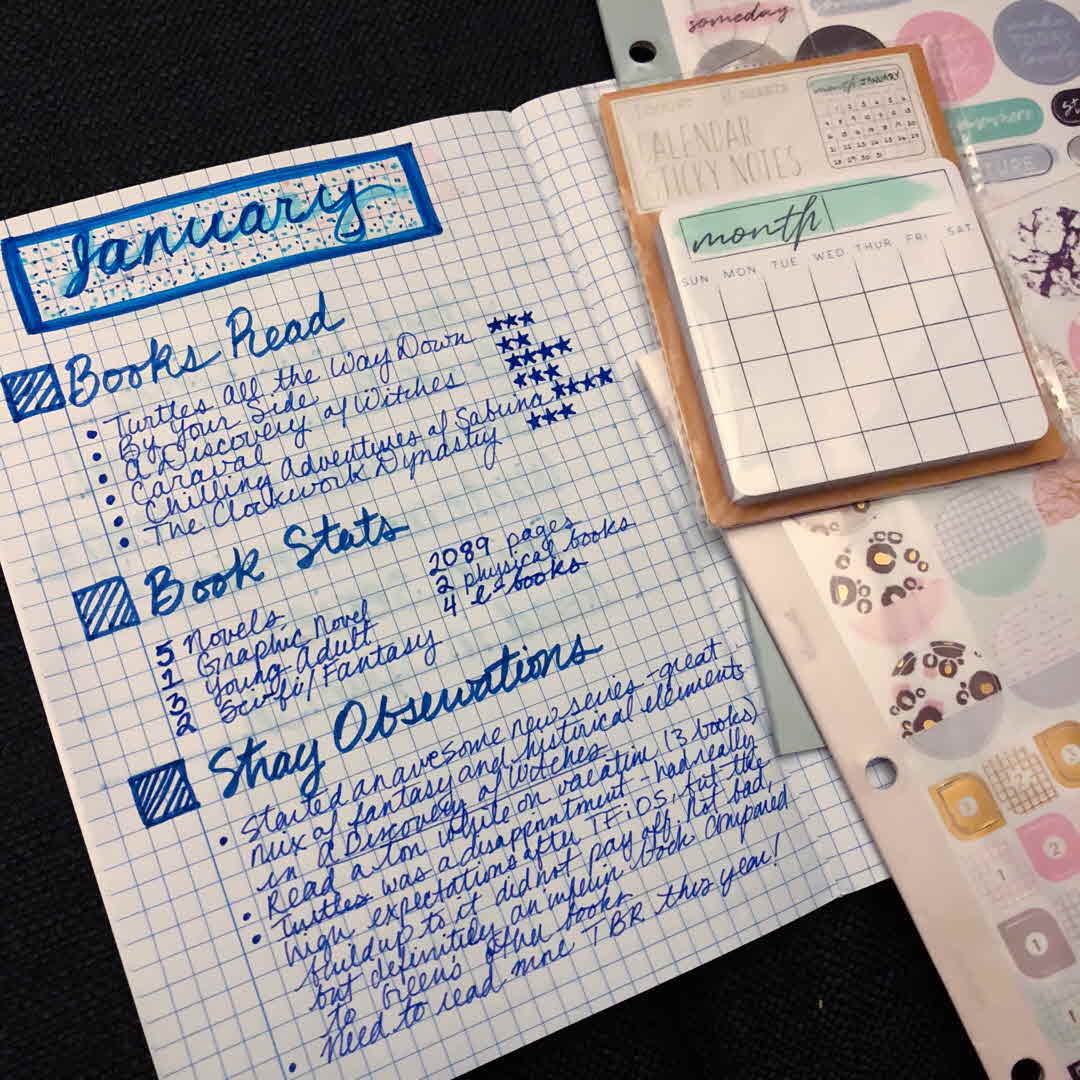 January
Books Read
• Turtles All the Way Down ★★★
• By Your Side ★★
• A Discovery of Witches ★★★★
• Caraval ★★★
• Chilling Adventures of Sabrina ★★★★
• The Clockwork Dynasty ★★★
Book Stats
5 Novels
1 Graphic Novel
3 Young Adult
2 Sci-fi/Fantasy
2089 pages
2 physical books
4 e-books
Stray Observations
• Started an awesome new series - great
mix of fantasy and historical elements
in A Discovery of Witches.
• Read a ton while on vacation (3 books)
• Turtles was a disappointment - had really
high expectations after TFiOS, but the
build up to it did not pay off. Not bad,
but definitely an inferior book compared
to Green's other books
• Need to read more TBR this year!
someday
CALENDAR
STICKY NOTES
month JANUARY
month
SUN MON TUE WED THUR FRI SAT
2
1
1